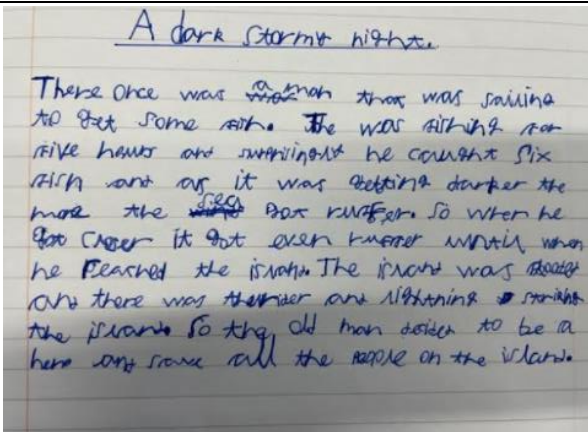 A dark stormy night.
There once was a man that was sailing
to get some fish. He was fishing for
five hours and surprisingly he caught six
fish and as it was getting darker the
more the sea got ruffer. So when he
got closer it got even ruffer until when
he reached the island. The island was flooded
and there was thunder and lightning striking
the island. So the old man decided to be a
hero and save all the people on the island.